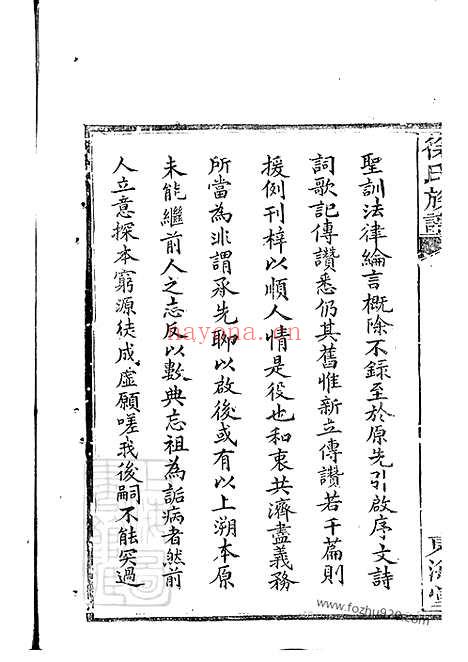 徐氏族譜
東海堂
聖訓法律綸言概除不錄至於原先引啟序文詩
詞歌記傳讚悉仍其舊惟新立傳讚若干篇則
援例刊梓以順人情是役也和衷共濟盡義務
所當為非謂承先聊以啟後或有以上溯本原
未能繼前人之志反以數典忘祖為詬病者然前
人立意探本窮源徒成虛願嗟我後嗣不能突過
nayona.cn
www.fozhu920.com